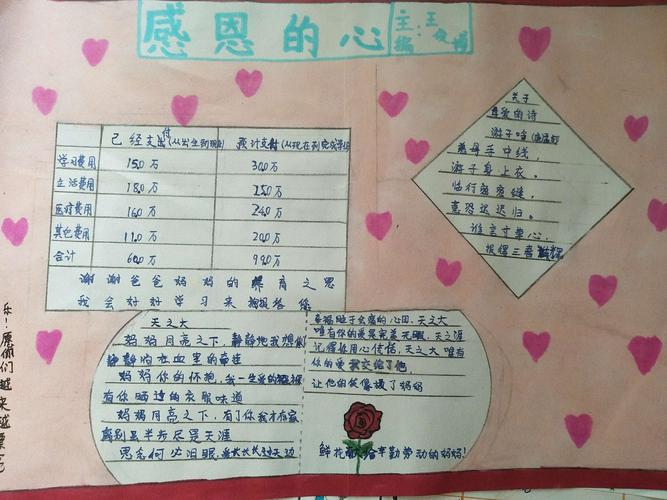 感恩的心
主编：王
已经支付(从出生到现在) 预计支付(从现在到完成学业)
学习费用 15.0万 30.0万
生活费用 18.0万 25.0万
医疗费用 16.0万 24.0万
其他费用 11.0万 20.0万
合计 60.0万 99.0万
谢谢爸爸妈妈的养育之恩
我会好好学习来报答你
关于
母爱的诗
游子吟
慈母手中线，
游子身上衣。
临行密密缝，
意恐迟迟归。
谁言寸草心，
报得三春
天之大
妈妈月亮之下，静静地我想你
静静淌在血里的牵挂
妈妈你的怀抱，我一生爱的
有你晒过的衣服味道
妈妈月亮之下，有了你我才有家
离别虽半步尽是天涯
思念何必泪眼，爱长长长过天边
幸福肚子会痛的心田，天之大
唯有你的爱是完美无瑕，天之涯
记得你用心传话，天之大唯有
你的爱我交给了他，
让他的笑像极了妈妈
鲜花献给辛勤劳动的妈妈！
乐！愿你们越来越漂亮